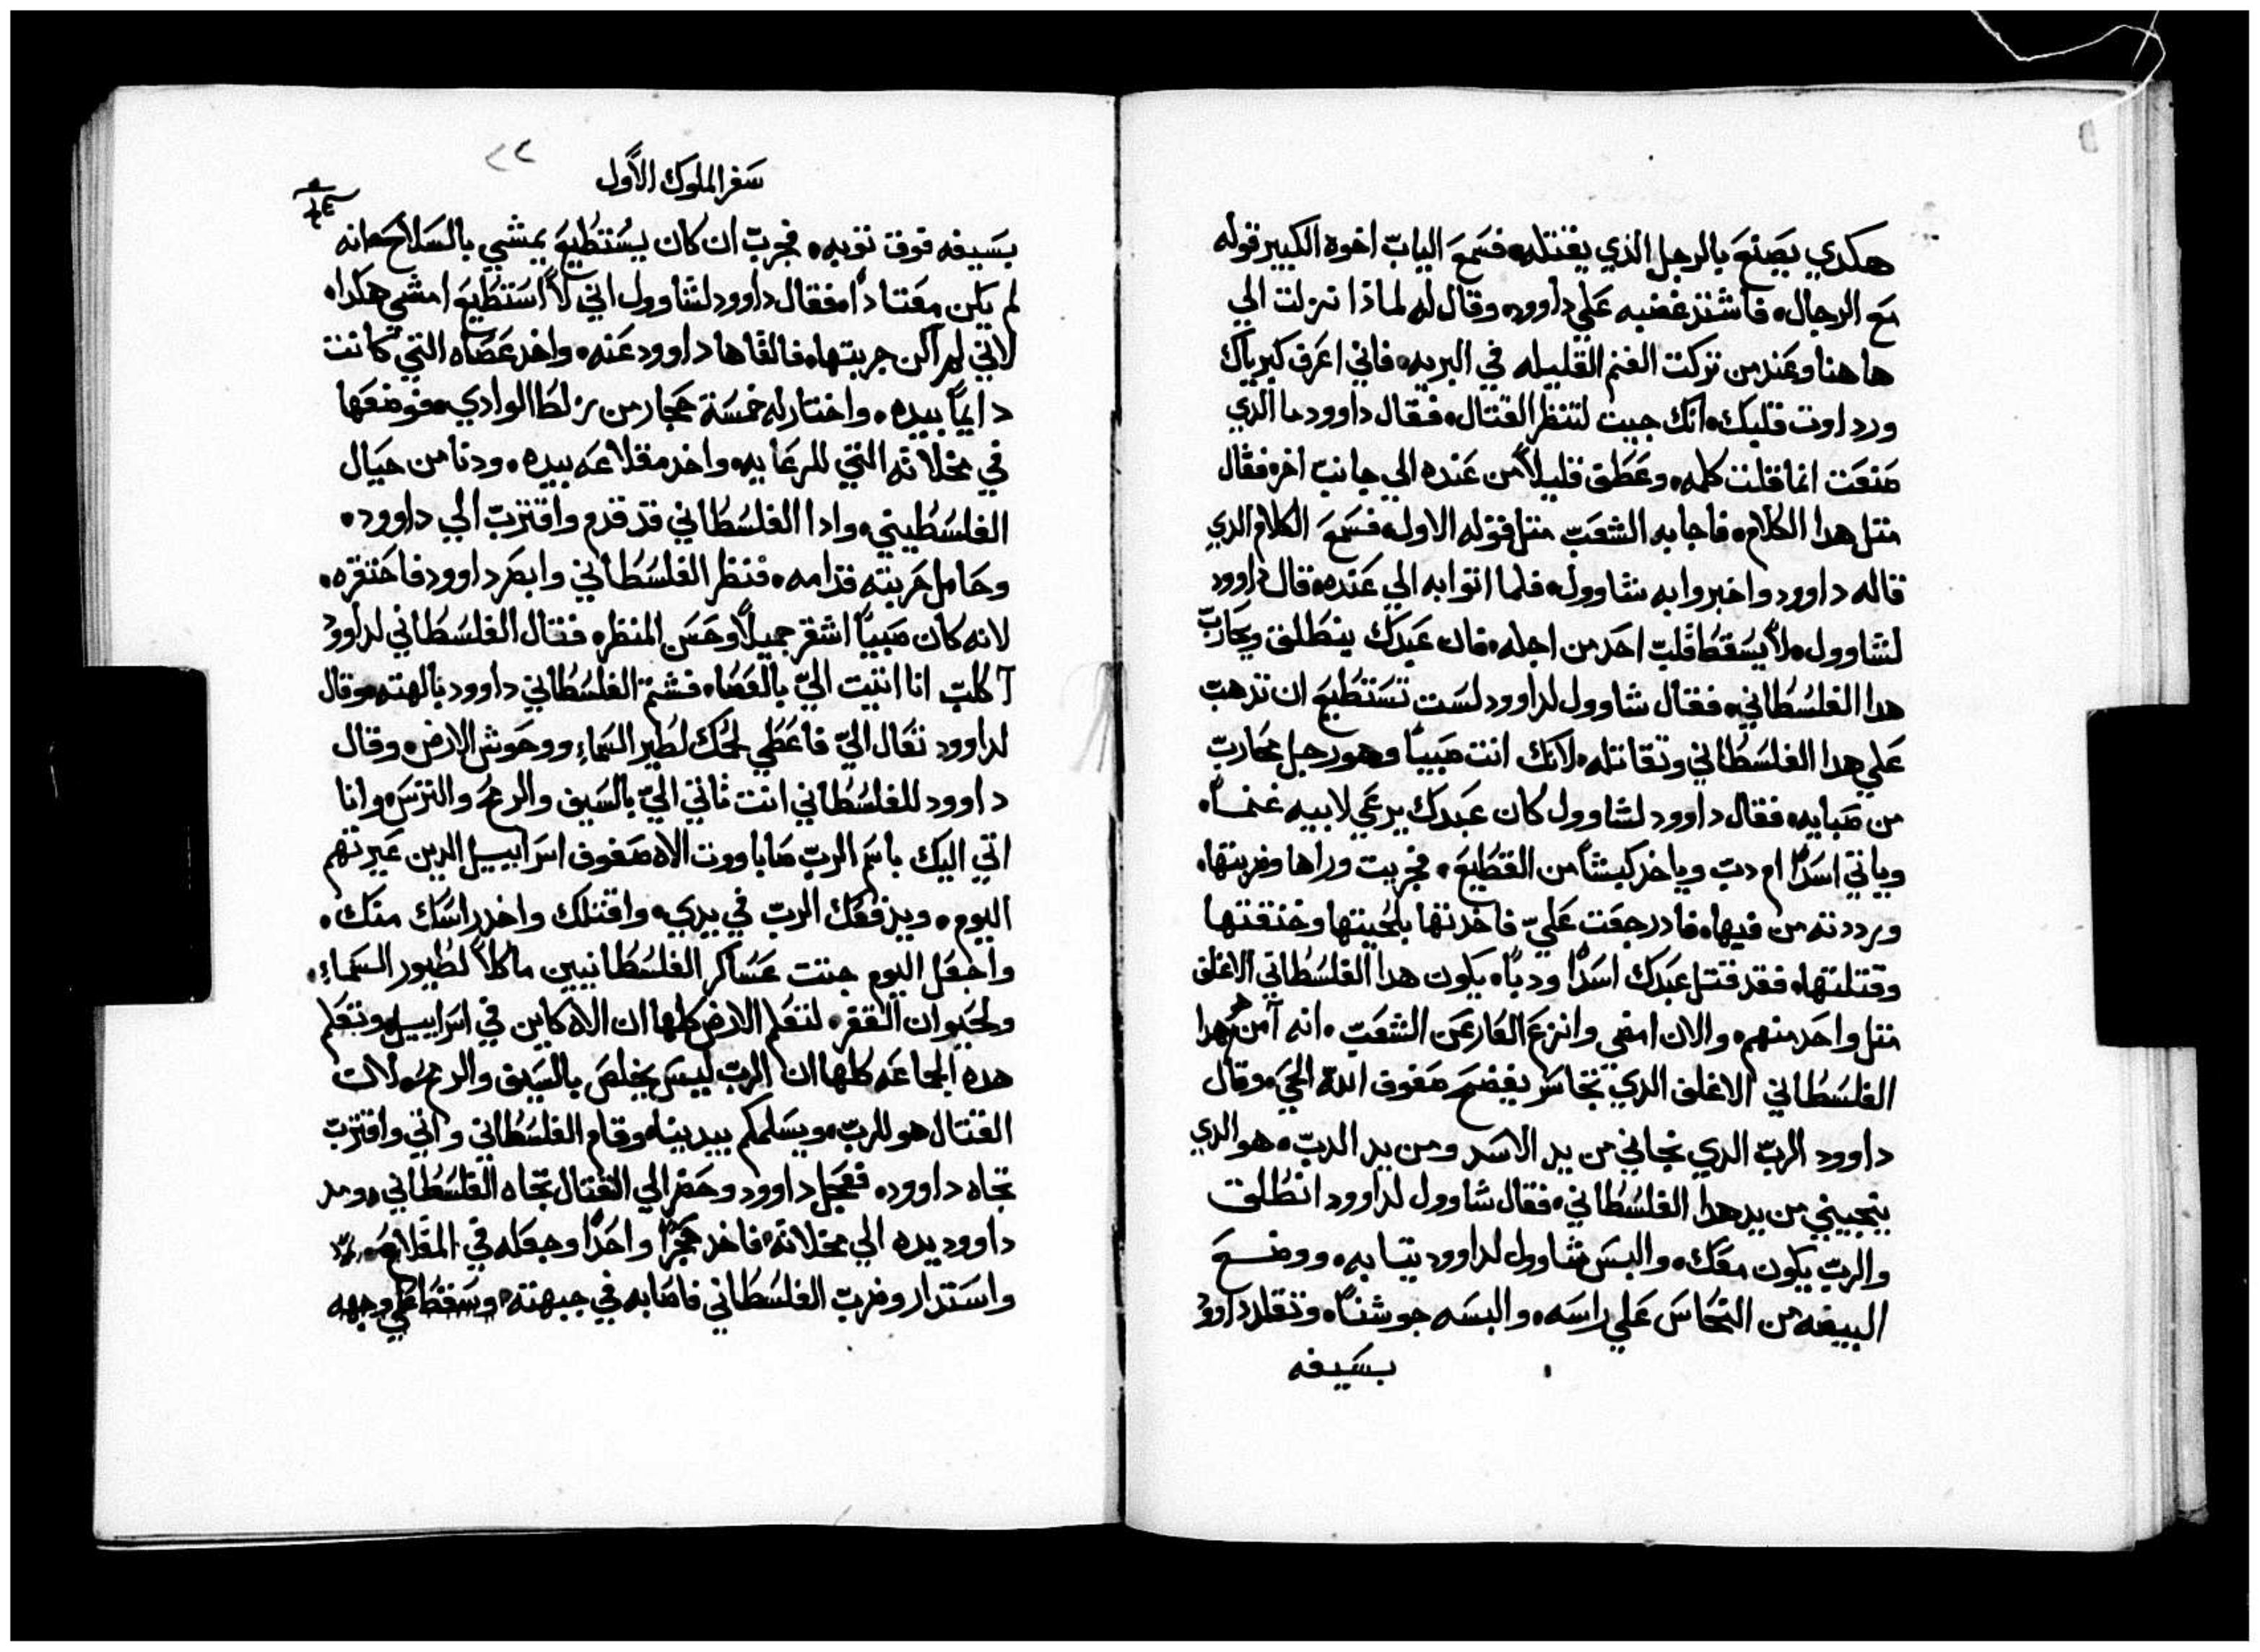 هكدي يصنع بالرجل الذي يقتله. فسمع الياب اخوه الكبير قوله
مع الرجال. فاشتد غضبه علي داوود. وقال له لماذا نزلت الي
هاهنا وعند من تركت الغنم القليله في البريه. فاني اعرف كبرياك
ورداوت قلبك. انك جيت لتنظر القتال. فقال داوود ما الدي
صنعت انما قلت كلمه. وعطف قليلاً من عنده الي جانب اخر. فقال
متل هدا الكلام. فاجابه الشعب متل قوله الاول. فسمع الكلام الدي
قاله داوود واخبروا به شاوول. فلما اتوا به الي عنده. قال داوود
لشاوول. لا يسقط قلب احد من اجله. فان عبدك ينطلق ويحارب
هدا الفلسطاني. فقال شاوول لداوود لست تستطيع ان تدهب
علي هدا الفلسطاني وتقاتله. لانك انت صبياً وهو رجل محارب
من صبايه. فقال داوود لشاوول كان عبدك يرعي لابيه غنماً.
وياتي اسداً ام دب وياخد كبشاً من القطيع. فخريت وراها وضربتها.
ورددته من فيها. فادا رجعت عليّ فاخدتها بلحيتها وخنقتها
وقتلتها. فقد قتل عبدك اسداً ودباً. يكون هدا الفلسطاني الاغلف
متل واحد منهم. والان امضي وانزع العار عن الشعب. انه من هو هدا
الفلسطاني الاغلف الدي تجاسر يفضح صفوف الله الحي. وقال
داوود الرب الدي نجاني من يد الاسد ومن يد الدب. هو الدي
ينجيني من يد هدا الفلسطاني. فقال شاوول لداوود انطلق
والرب يكون معك. والبس شاوول لداوود تيابه. ووضع
البيضه من النحاس علي راسه. والبسه جوشناً. وتقلد داوود
بسيفه
٢٢
سفر الملوك الاول
بسيفه فوق توبه. فجرب ان كان يستطيع يمشي بالسلاح. انه
لم يكن معتاداً. فقال داوود لشاوول اني لا استطيع امشي هكدا.
لاني لم اكن جربتها. فالقاها داوود عنه. واخد عصاه التي كانت
دايماً بيده. واختار له خمسة حجار من زلط الوادي. فوضعها
في مخلاته التي للرعايه. واخد مقلاعه بيده. ودنا من حيال
الفلسطيني. وادا الفلسطاني قد قدم واقترب الي داوود.
وحامل حربته قدامه. فنظر الفلسطاني وابصر داوود فاحتقره.
لانه كان صبياً اشقر جميلاً وحسن المنظر. فقال الفلسطاني لداوود
أكلب انا اتيت اليّ بالعصاه. فشتم الفلسطاني داوود بالهته. وقال
لداوود تعال اليّ فاعطي لحمك لطير السماء ووحوش الارض. وقال
داوود للفلسطاني انت تاتي اليّ بالسيف والرمح والترس. وانا
اتي اليك باسم الرب صاباووت الاه صفوف اسراييل الدين عيرتهم
اليوم. ويدفعك الرب في يدي. واقتلك واخد راسك منك.
واجعل اليوم جتت عساكر الفلسطانيين ماكلاً لطيور السماء.
ولحيوان القفر. لتعلم الارض كلها ان الاه كاين في اسراييل. وتعلم
هده الجاعه كلها ان الرب ليس يخلص بالسيف والرمح. لان
القتال هو للرب. ويسلمكم بيدينا. وقام الفلسطاني واتي واقترب
تجاه داوود. فعجل داوود وحضر الي القتال تجاه الفلسطاني. ومد
داوود يده الي مخلاته. فاخد حجراً واحداً وجعله في المقلاع.
واستدار وضرب الفلسطاني فاصابه في جبهته. وسقط علي وجهه